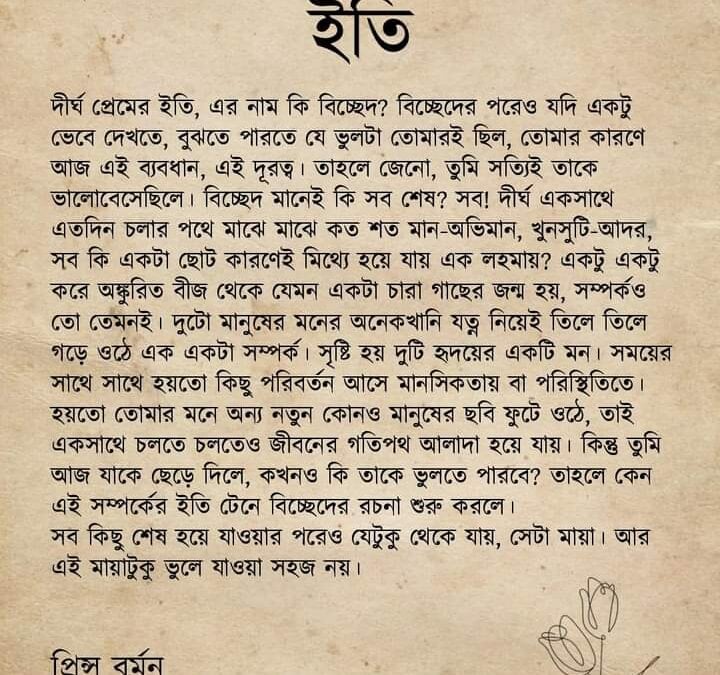 ইতি
দীর্ঘ প্রেমের ইতি, এর নাম কি বিচ্ছেদ? বিচ্ছেদের পরেও যদি একটু
ভেবে দেখতে, বুঝতে পারতে যে ভুলটা তোমারই ছিল, তোমার কারণে
আজ এই ব্যবধান, এই দূরত্ব। তাহলে জেনো, তুমি সত্যিই তাকে
ভালোবেসেছিলে। বিচ্ছেদ মানেই কি সব শেষ? সব! দীর্ঘ একসাথে
এতদিন চলার পথে মাঝে মাঝে কত শত মান-অভিমান, খুনসুটি-আদর,
সব কি একটা ছোট কারণেই মিথ্যে হয়ে যায় এক লহমায়? একটু একটু
করে অঙ্কুরিত বীজ থেকে যেমন একটা চারা গাছের জন্ম হয়, সম্পর্কও
তো তেমনই। দুটো মানুষের মনের অনেকখানি যত্ন নিয়েই তিলে তিলে
গড়ে ওঠে এক একটা সম্পর্ক। সৃষ্টি হয় দুটি হৃদয়ের একটি মন। সময়ের
সাথে সাথে হয়তো কিছু পরিবর্তন আসে মানসিকতায় বা পরিস্থিতিতে।
হয়তো তোমার মনে অন্য নতুন কোনও মানুষের ছবি ফুটে ওঠে, তাই
একসাথে চলতে চলতেও জীবনের গতিপথ আলাদা হয়ে যায়। কিন্তু তুমি
আজ যাকে ছেড়ে দিলে, কখনও কি তাকে ভুলতে পারবে? তাহলে কেন
এই সম্পর্কের ইতি টেনে বিচ্ছেদের রচনা শুরু করলে।
সব কিছু শেষ হয়ে যাওয়ার পরেও যেটুকু থেকে যায়, সেটা মায়া। আর
এই মায়াটুকু ভুলে যাওয়া সহজ নয়।
প্রিন্স বর্মন